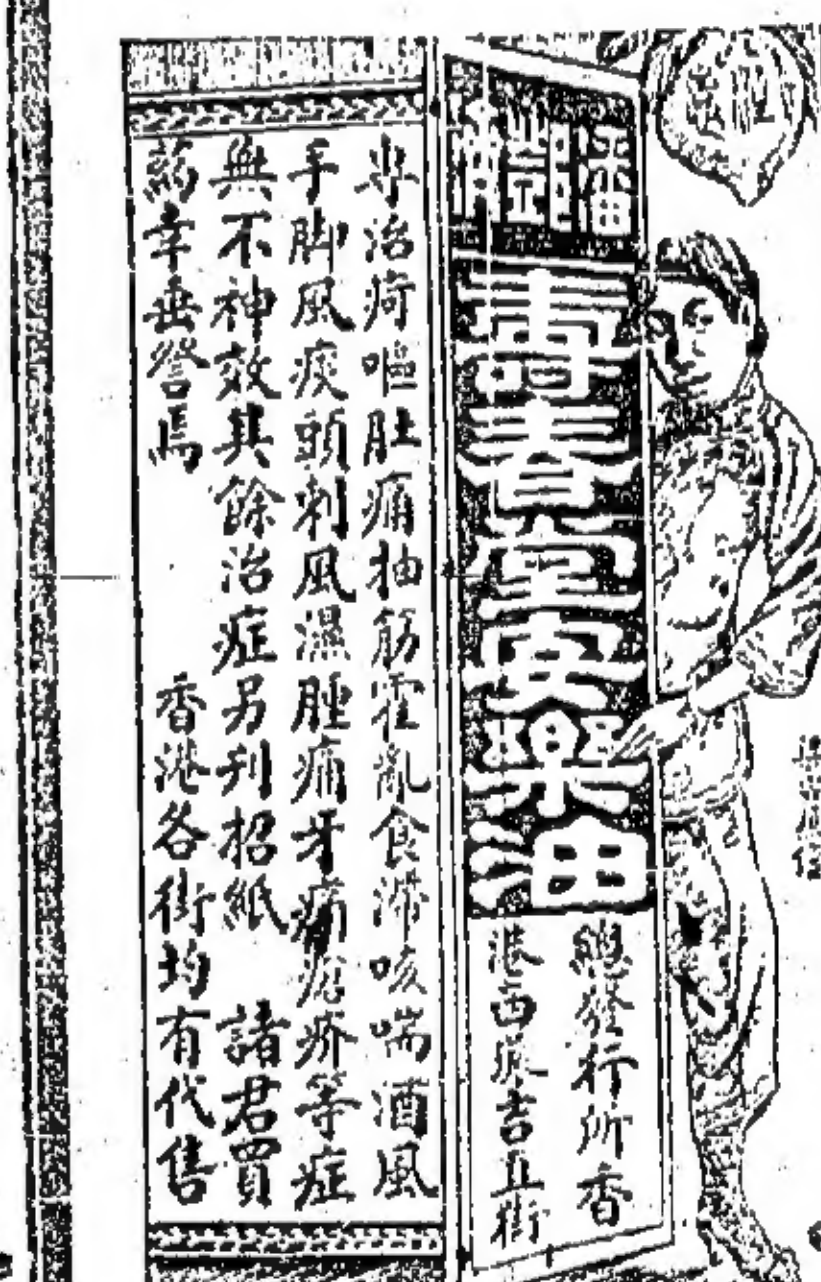 壽春堂安樂油
總發行所香
港西營吉直街
專治痾嘔肚痛抽筋霍亂食滯咳喘酒風
手脚風痰頭刺風濕腫痛牙痛瘡疥等症
無不神效其餘治症另刋招紙　諸君買
葯幸垂詧焉　香港各街均有代售